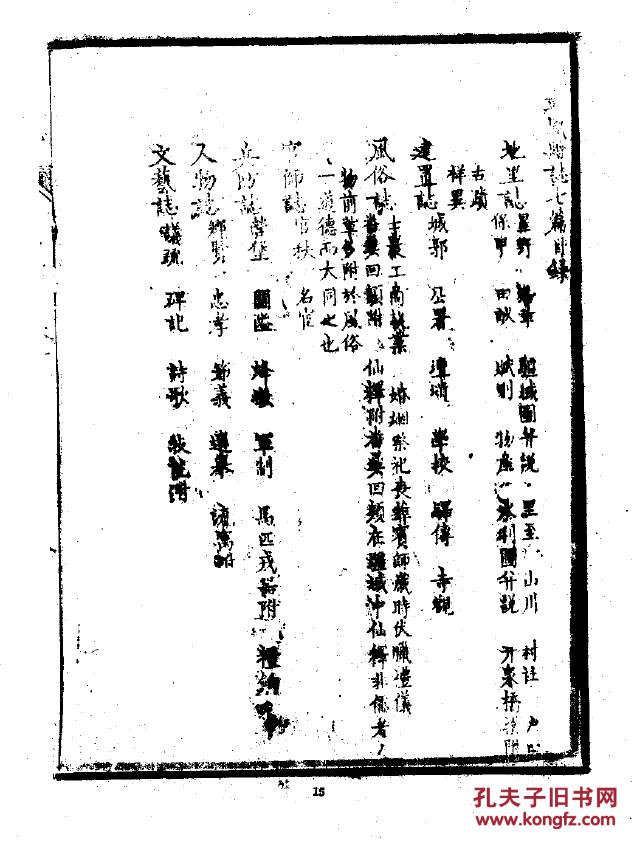 縣誌七篇目錄
地里誌 星野 疆域圖弁說 里至 山川 村社 戶口
保甲 田賦 物產 水利圖弁說
古蹟
祥異
建置誌 城郭 公署 壇壝 學校 驛傳 寺觀
風俗誌 士農工商執業 婚姻祭祀喪葬賓師歲時伏臘禮儀
番夷回類附 仙釋附番夷回類在疆域中仙釋非儒者
物前草多附於風俗
一道德而大同之也
官師誌 官秩 名宦
兵防誌 營堡 關隘 烽墩 軍制 馬匹戎器附
人物誌 鄉賢 忠孝 節義 選舉
文藝誌 議疏 碑記 詩歌
15
孔夫子旧书网
www.kongfz.com